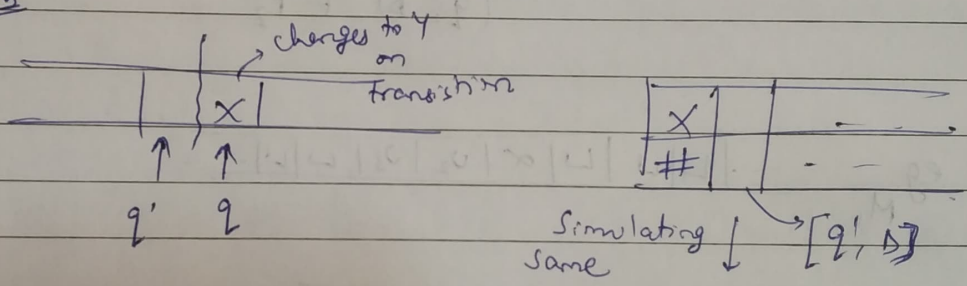 changes to Y
on
transistion
X
X
#
q'
q
Simulating
same
[q', D]